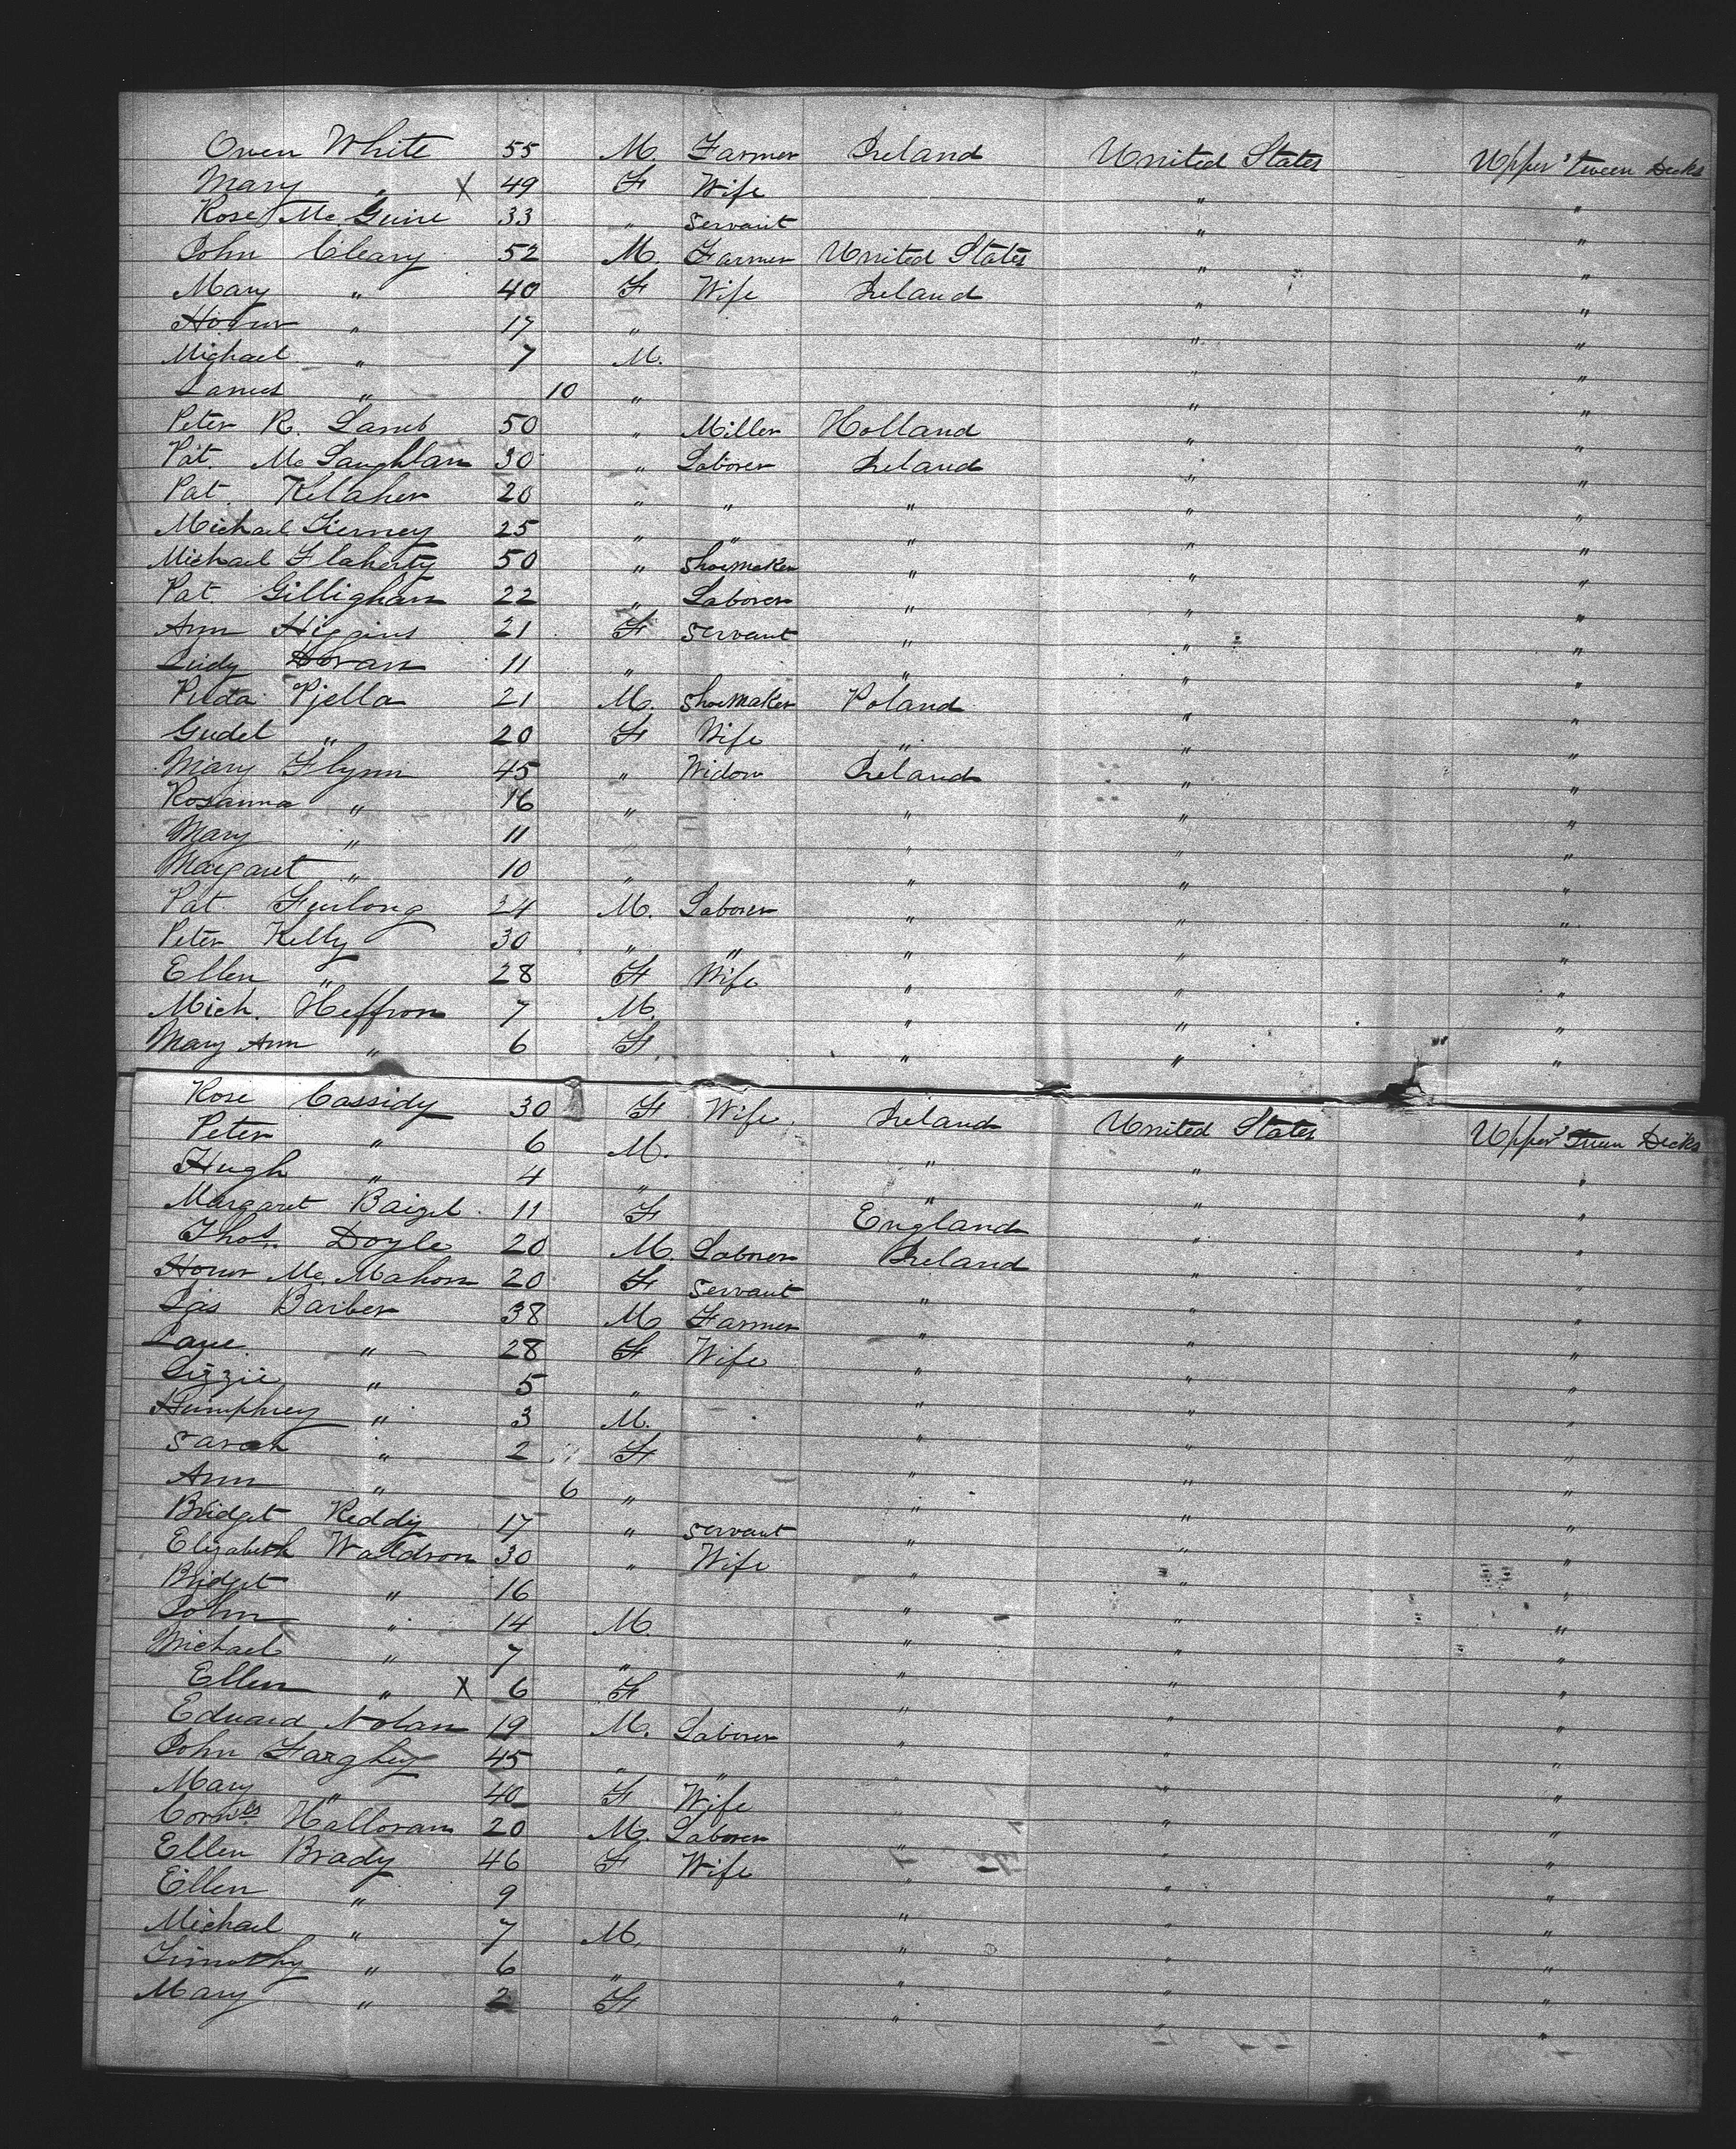 Owen White 55 M. Farmer Ireland United States Upper 'Tween Decks
Mary " X 49 F Wife " "
Rose Mc Guire 33 " Servant " "
John Cleary 52 M. Farmer United States " "
Mary " 40 F Wife Ireland " "
Honor " 17 " " "
Michael " 7 M. " "
James " 10 " " "
Peter R. Lamb 50 " Miller Holland " "
Pat. Mc Laughlan 30 " Laborer Ireland " "
Pat. Kelaher 20 " " " " "
Michael Tierney 25 " " " " "
Michael Flaherty 50 " Shoemaker " " "
Pat. Gillighan 22 " Laborer " " "
Ann Higgins 21 F Servant " " "
Judy Horan 11 " " " "
Pjella 21 M. Shoemaker Poland " "
Gudel " 20 F Wife " " "
Mary Flynn 45 " Widow Ireland " "
Rosanna " 16 " " " "
Mary " 11 " " " "
Margaret " 10 " " " "
Pat Furlong 24 M. Laborer " " "
Peter Kelly 30 " " " " "
Ellen " 28 F Wife " " "
Mich. Heffron 7 M. " " "
Mary Ann " 6 F. " " "
Rose Cassidy 30 F Wife. Ireland United States Upper 'Tween Decks
Peter " 6 M. " " "
Hugh " 4 " " " "
Margaret 11 F England " "
Thos. Doyle 20 M. Laborer Ireland " "
Honor Mc Mahon 20 F Servant " " "
Jas Barber 38 M Farmer " " "
Jane " 28 F Wife " " "
Lizzie " 5 " " " "
Humphrey " 3 M. " " "
Sarah " 2 F " " "
Ann " 6 " " " "
Bridget Reddy 17 " Servant " " "
Elizabeth Waldron 30 " Wife " " "
Bridget " 16 " " "
John " 14 M. " " "
Michael " 7 " " " "
Ellen " X 6 F " " "
Edward Nolan 19 M. Laborer " " "
John Farghey 45 " " " " "
Mary " 40 F Wife " " "
Corn'ls Halloran 20 M. Laborer " " "
Ellen Brady 46 F Wife " " "
Ellen " 9 " " "
Michael " 7 M. " " "
Timothy " 6 " " " "
Mary " 2 F " " "